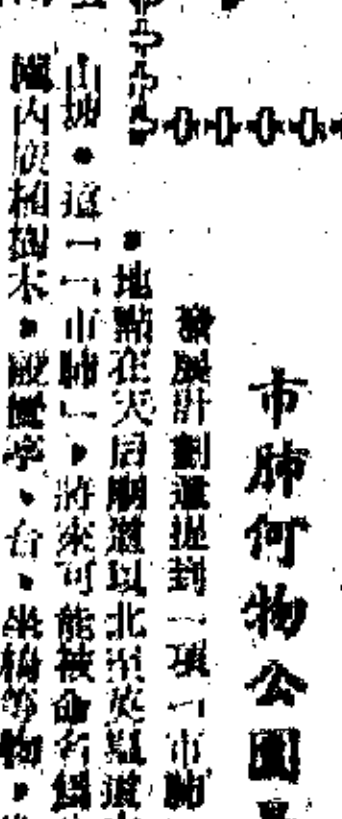 市肺何物公園
發展計劃還提到一項「市肺
地點在天后廟道以北至英皇道
山坡。這「市肺」,將來可能被命名爲
園內廣植樹木。設涼亭、台、坐椅等物,